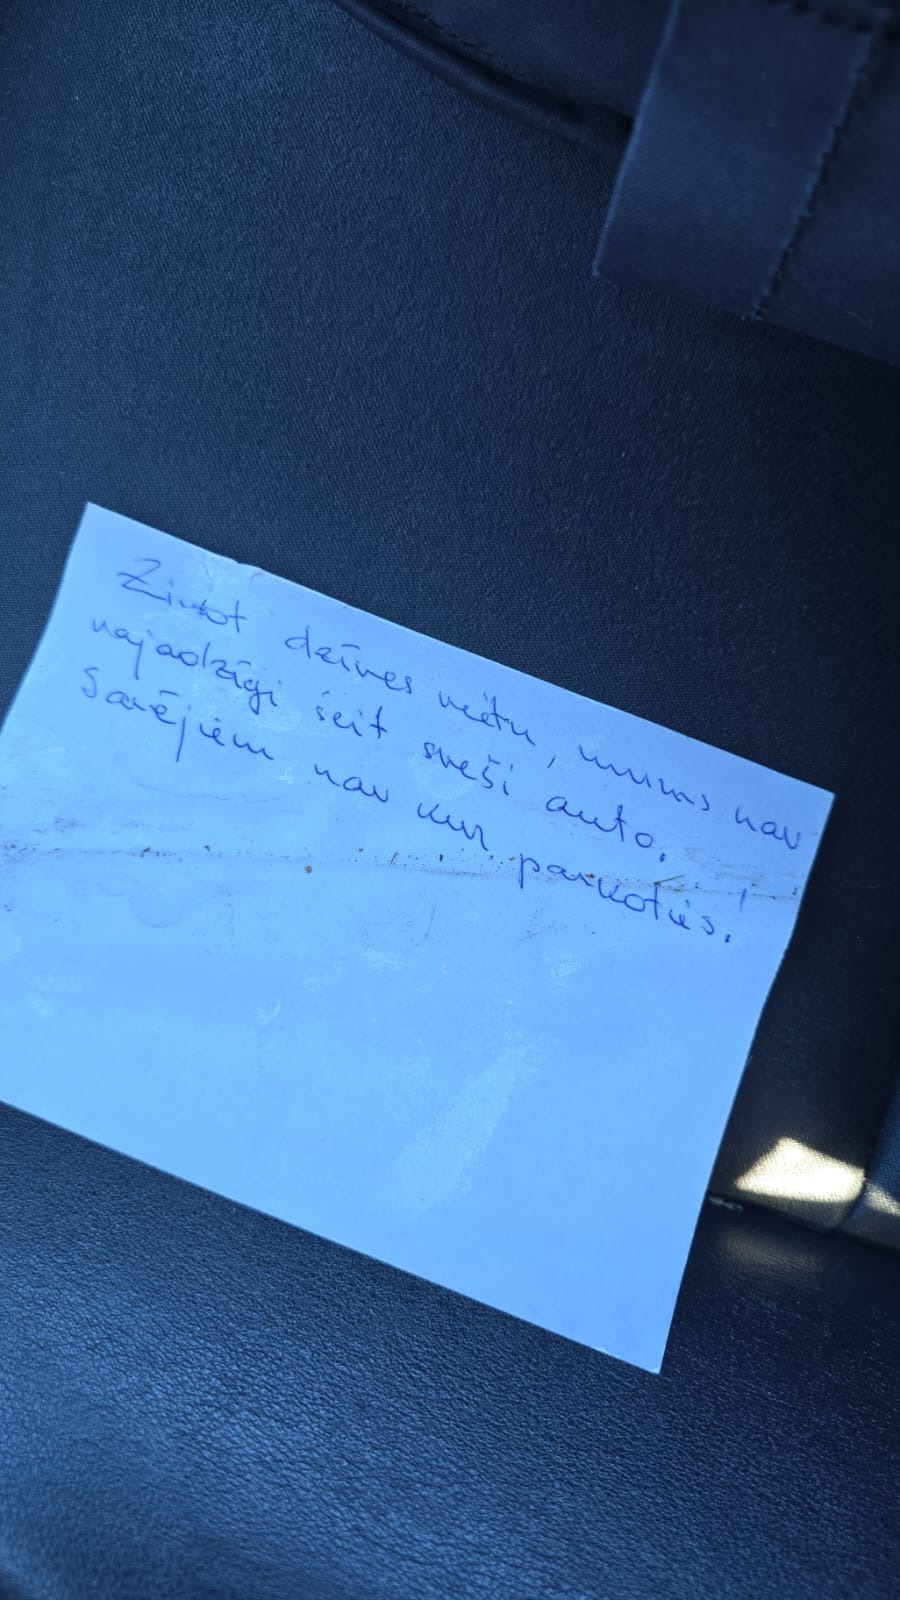 Zinot dzīves vietu, mums nav
vajadzīgi šeit sveši auto.
Savējiem nav kur parkoties!